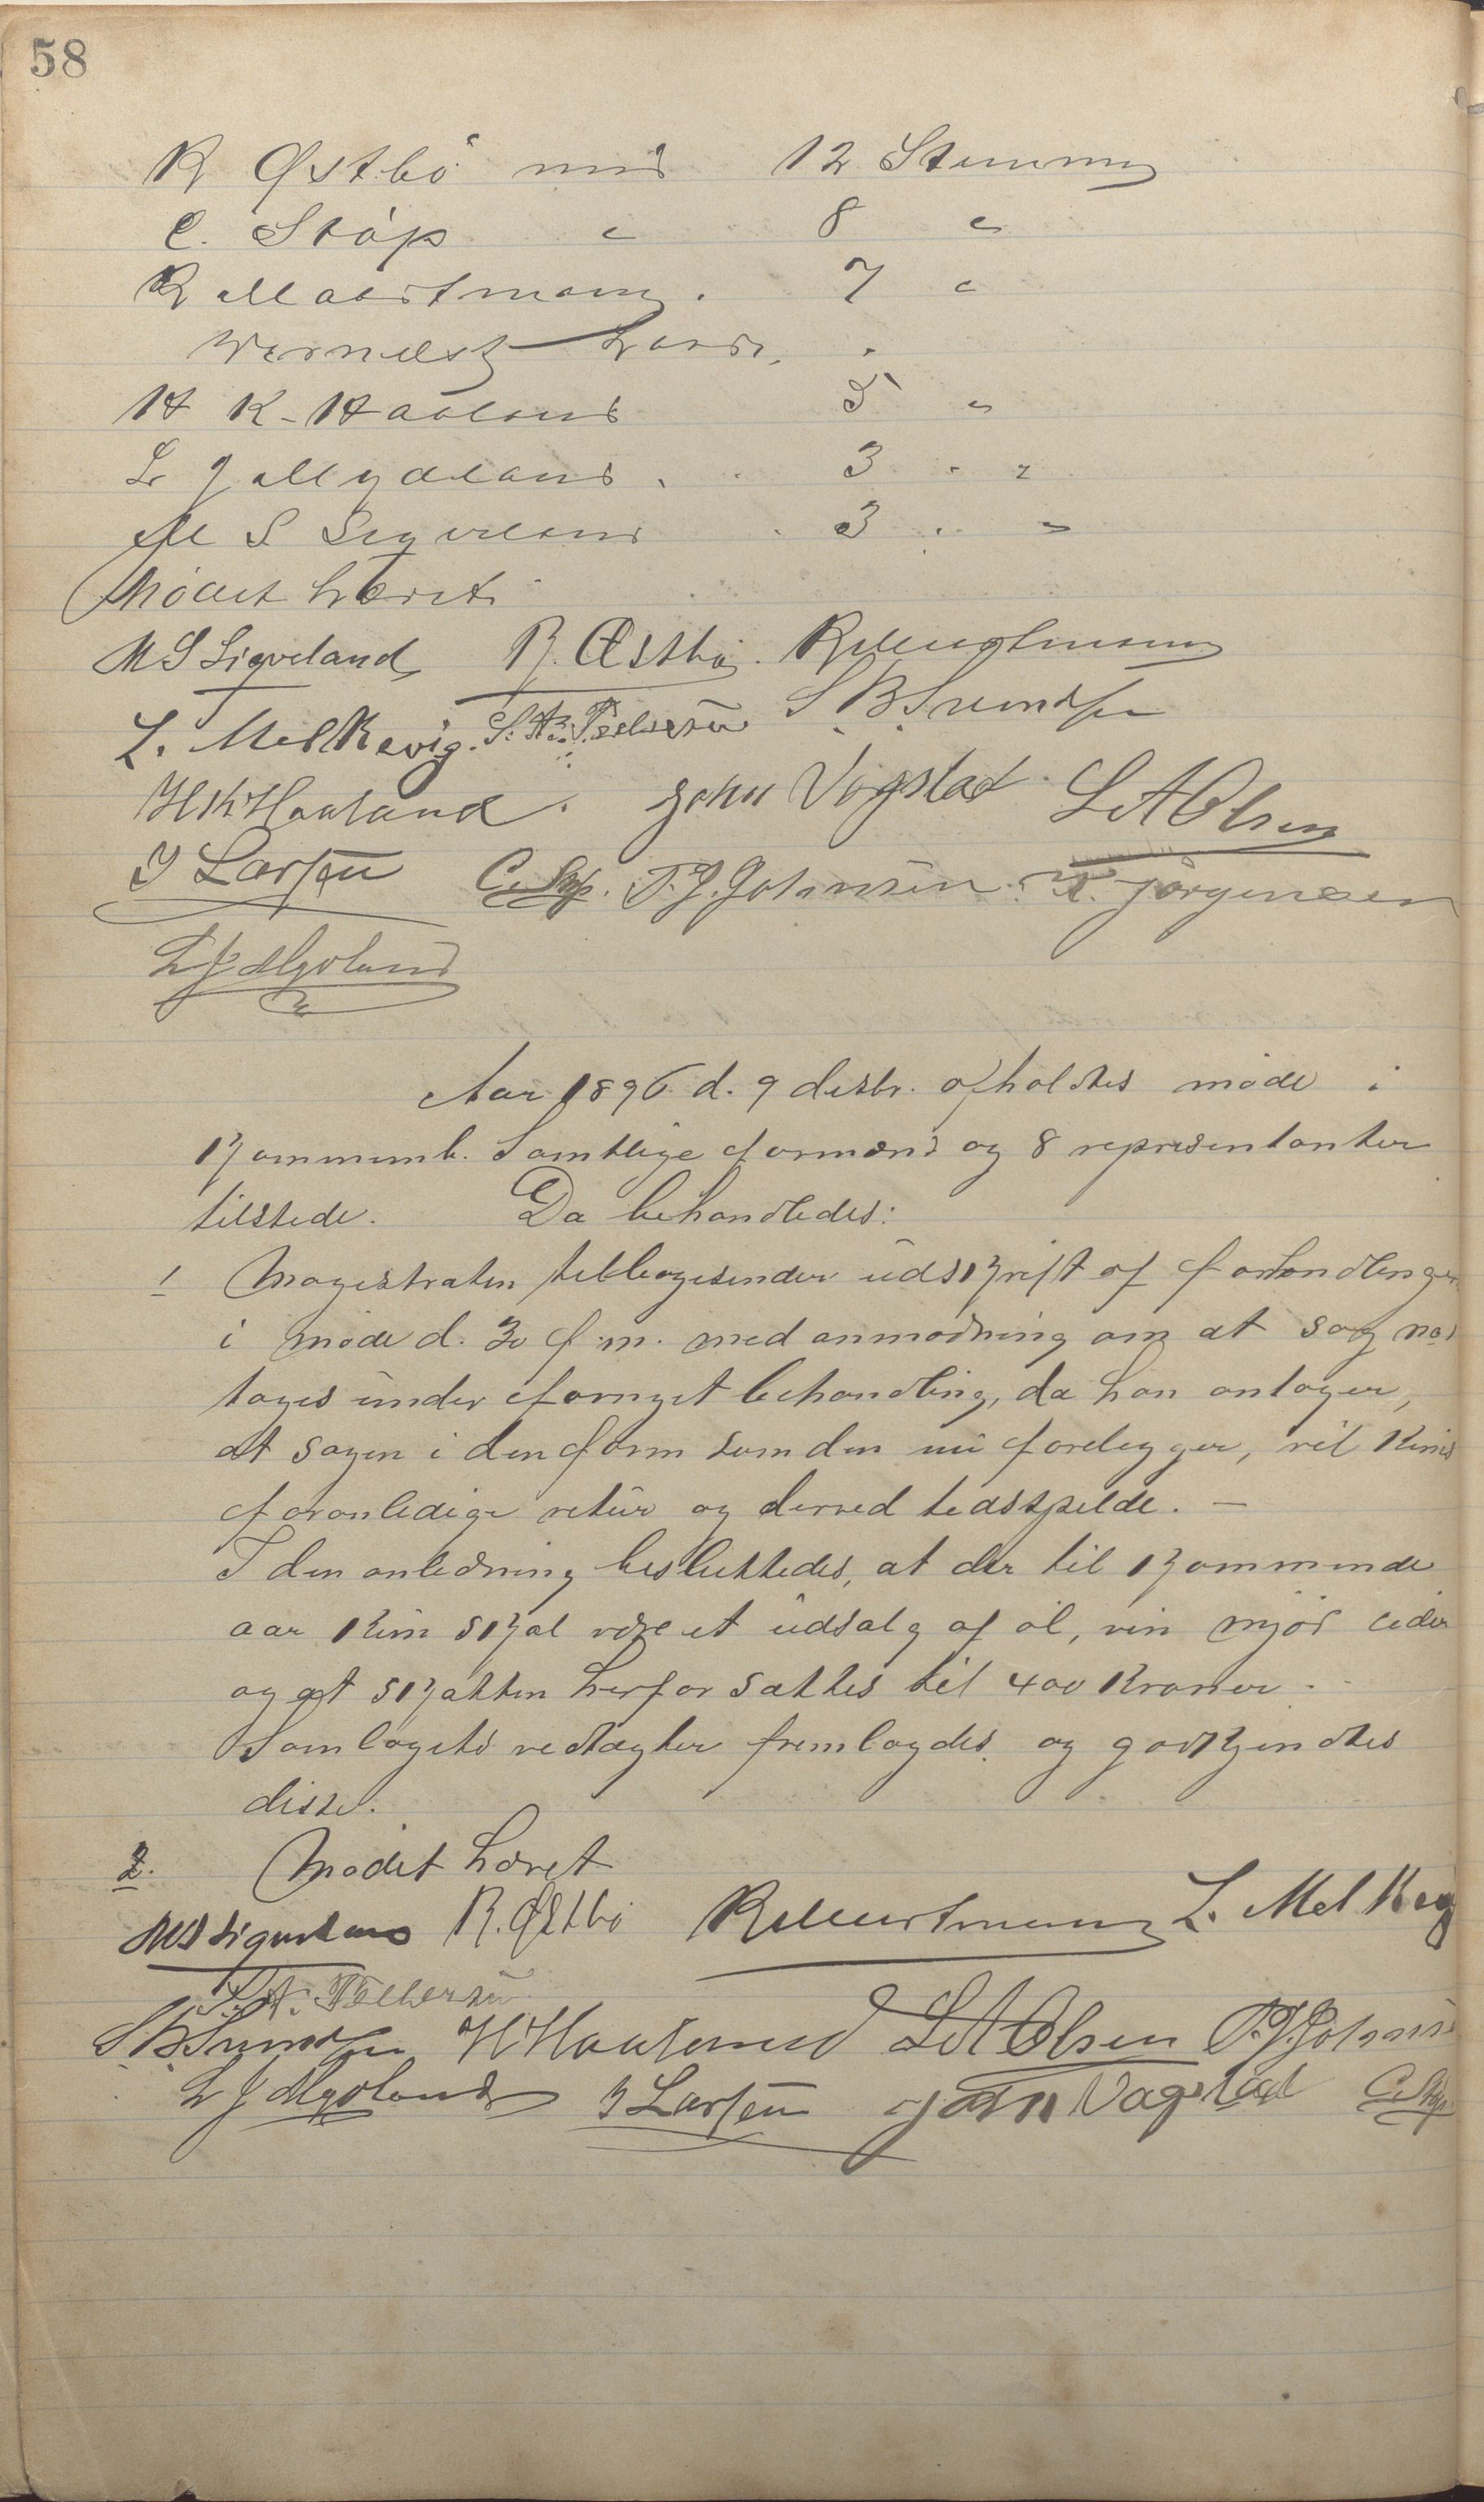 58
R Østbö med 12 Stemmer
C. Stöp " 8 "
R Maartmann. 7 "
H K. Haaland 5 "
L J Mydland. 3 " "
M S Sigveland 3 " "
Mödet hævet.
M S Sigveland R. Østbö. R Maartmann
L. Melkevig. S. A. S B Svendsen
H K Haaland. John Vogstad L A Olsen
I Larsen C. Stöp. P. J. Johnsen. K. Jörgensen
L J Mydland
Aar 1896 d. 9 desbr. afholdtes möde i
Kommuneb. Samtlige formænd og 8 representanter
tilstede. Da behandledes:
1 Magistraten tilbagesender udskrift af forhandlinger
i möde d. 30 f. m. med anmodning om at sag
tages under fornyet behandling, da han antager,
at sagen i den form som den nu foreligger, vil kun
foranledige retur og derved tidsspilde. —
I den anledning besluttedes, at der til kommende
aar kun skal være et udsalg af öl, vin mjöd cider
og at skatten herfor sættes til 400 Kroner. -
Samlagets vedtægter fremlagdes og godkjendtes
disse.
2. Mödet hævet
M S Sigveland R. Østbö R Maartmann L. Melkevig
S. A.
S B Svendsen H K Haaland L A Olsen P. J. Johnsen
L J Mydland I Larsen John Vagstad C. Stöp